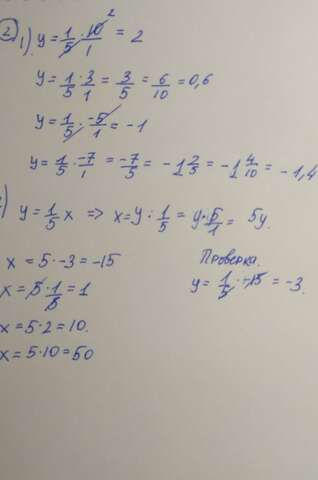 ② 1) y = 1/5 · 10/1 ² = 2
y = 1/5 · 3/1 = 3/5 = 6/10 = 0,6
y = 1/5 · -5/1 = -1
y = 1/5 · -7/1 = -7/5 = -1 2/5 = -1 4/10 = -1,4
) y = 1/5 x => x = y : 1/5 = y · 5/1 = 5y.
x = 5 · -3 = -15
Проверка.
x = 5 · 1/5 = 1
y = 1/5 · -15 = -3.
x = 5 · 2 = 10.
x = 5 · 10 = 50